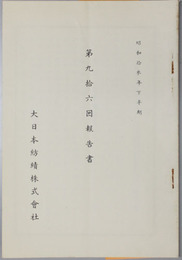 昭和拾參年下半期
第九拾六回報告書
大日本紡績株式會社